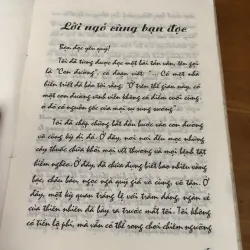 Lời ngỏ cùng bạn đọc
Bạn đọc yêu quý!
Tôi đã từng được đọc một bài tản văn, tên gọi
là "Con đường", có đoạn viết: "... Có một nhà
hiền triết đã bảo tôi rằng: "Ở trên thế gian này, có
một con đường vành viên không có điểm cuối cùng,
ở đó có nguồn gốc của mọi sự sung sướng"
Tôi đã chập chững bắt đầu bước vào con đường
vô cùng kỳ dị đó. Ở đây, nơi nơi đều mọc những
cây thuốc chữa khỏi mọi vết thương và mọi bệnh tật
hiểm nghèo. Ở đây, đã chứa đựng biết bao nhiêu vàng
bạc, châu báu, ngọc ngà quý giá vô cùng vô tận. Ở
đây, một kỳ quan tráng lệ với trăm dáng, ngàn vẻ
của thiên nhiên đã bày ra trước mắt tôi. Tôi không
có tiền lộ phí, mà vẫn có thể trong chớp chiêm ngưỡng